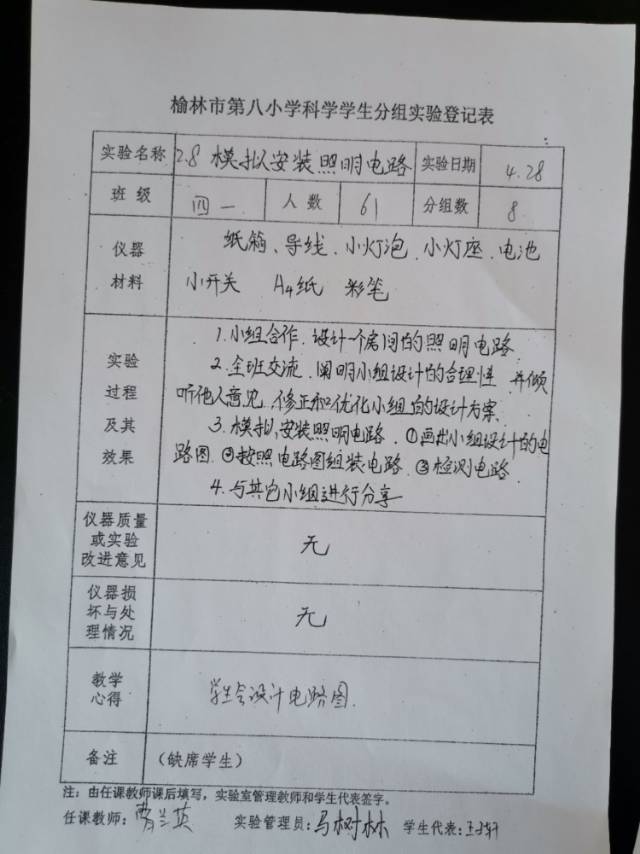 榆林市第八小学科学学生分组实验登记表
实验名称 2.8 模拟安装照明电路 实验日期 4.28
班级 四一 人数 61 分组数 8
仪器材料
纸箱、导线、小灯泡、小灯座、电池
小开关 A4纸 彩笔
实验过程及其效果
1.小组合作、设计一个房间的照明电路
2.全班交流、阐明小组设计的合理性 并倾
听他人意见、修正和优化小组的设计方案
3.模拟安装照明电路、①画出小组设计的电
路图、②按照电路图组装电路、③检测电路
4.与其它小组进行分享
仪器质量
或实验
改进意见
无
仪器损
坏与处
理情况
无
教学
心得
学生会设计电路图.
备注 (缺席学生)
注:由任课教师课后填写,实验室管理教师和学生代表签字。
任课教师: 实验管理员:马树林 学生代表: